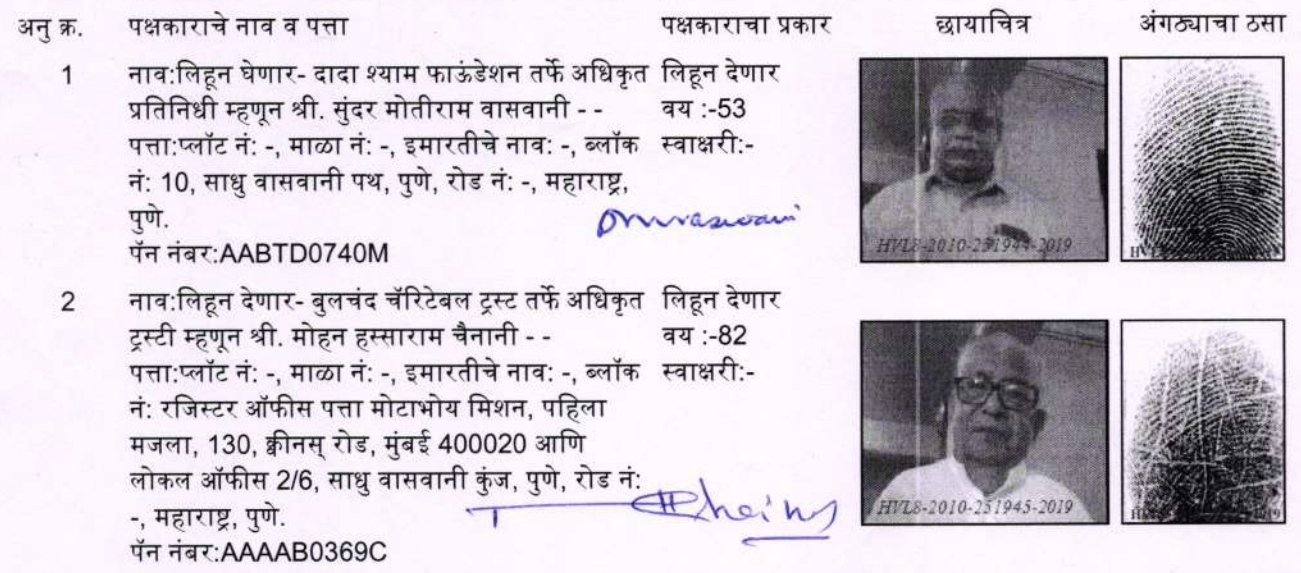 अनु क्र. पक्षकाराचे नाव व पत्ता पक्षकाराचा प्रकार छायाचित्र अंगठ्याचा ठसा
1 नाव:लिहून घेणार- दादा श्याम फाऊंडेशन तर्फे अधिकृत लिहून देणार
प्रतिनिधी म्हणून श्री. सुंदर मोतीराम वासवानी - - वय :-53
पत्ता:प्लॉट नं: -, माळा नं: -, इमारतीचे नाव: -, ब्लॉक स्वाक्षरी:-
नं: 10, साधु वासवानी पथ, पुणे, रोड नं: -, महाराष्ट्र,
पुणे.
पॅन नंबर:AABTD0740M
HVL8-2010-251944-2019
2 नाव:लिहून देणार- बुलचंद चॅरिटेबल ट्रस्ट तर्फे अधिकृत लिहून देणार
ट्रस्टी म्हणून श्री. मोहन हस्साराम चैनानी - - वय :-82
पत्ता:प्लॉट नं: -, माळा नं: -, इमारतीचे नाव: -, ब्लॉक स्वाक्षरी:-
नं: रजिस्टर ऑफीस पत्ता मोटाभोय मिशन, पहिला
मजला, 130, क्वीनस् रोड, मुंबई 400020 आणि
लोकल ऑफीस 2/6, साधु वासवानी कुंज, पुणे, रोड नं:
-, महाराष्ट्र, पुणे.
पॅन नंबर:AAAAB0369C
HVL8-2010-251945-2019